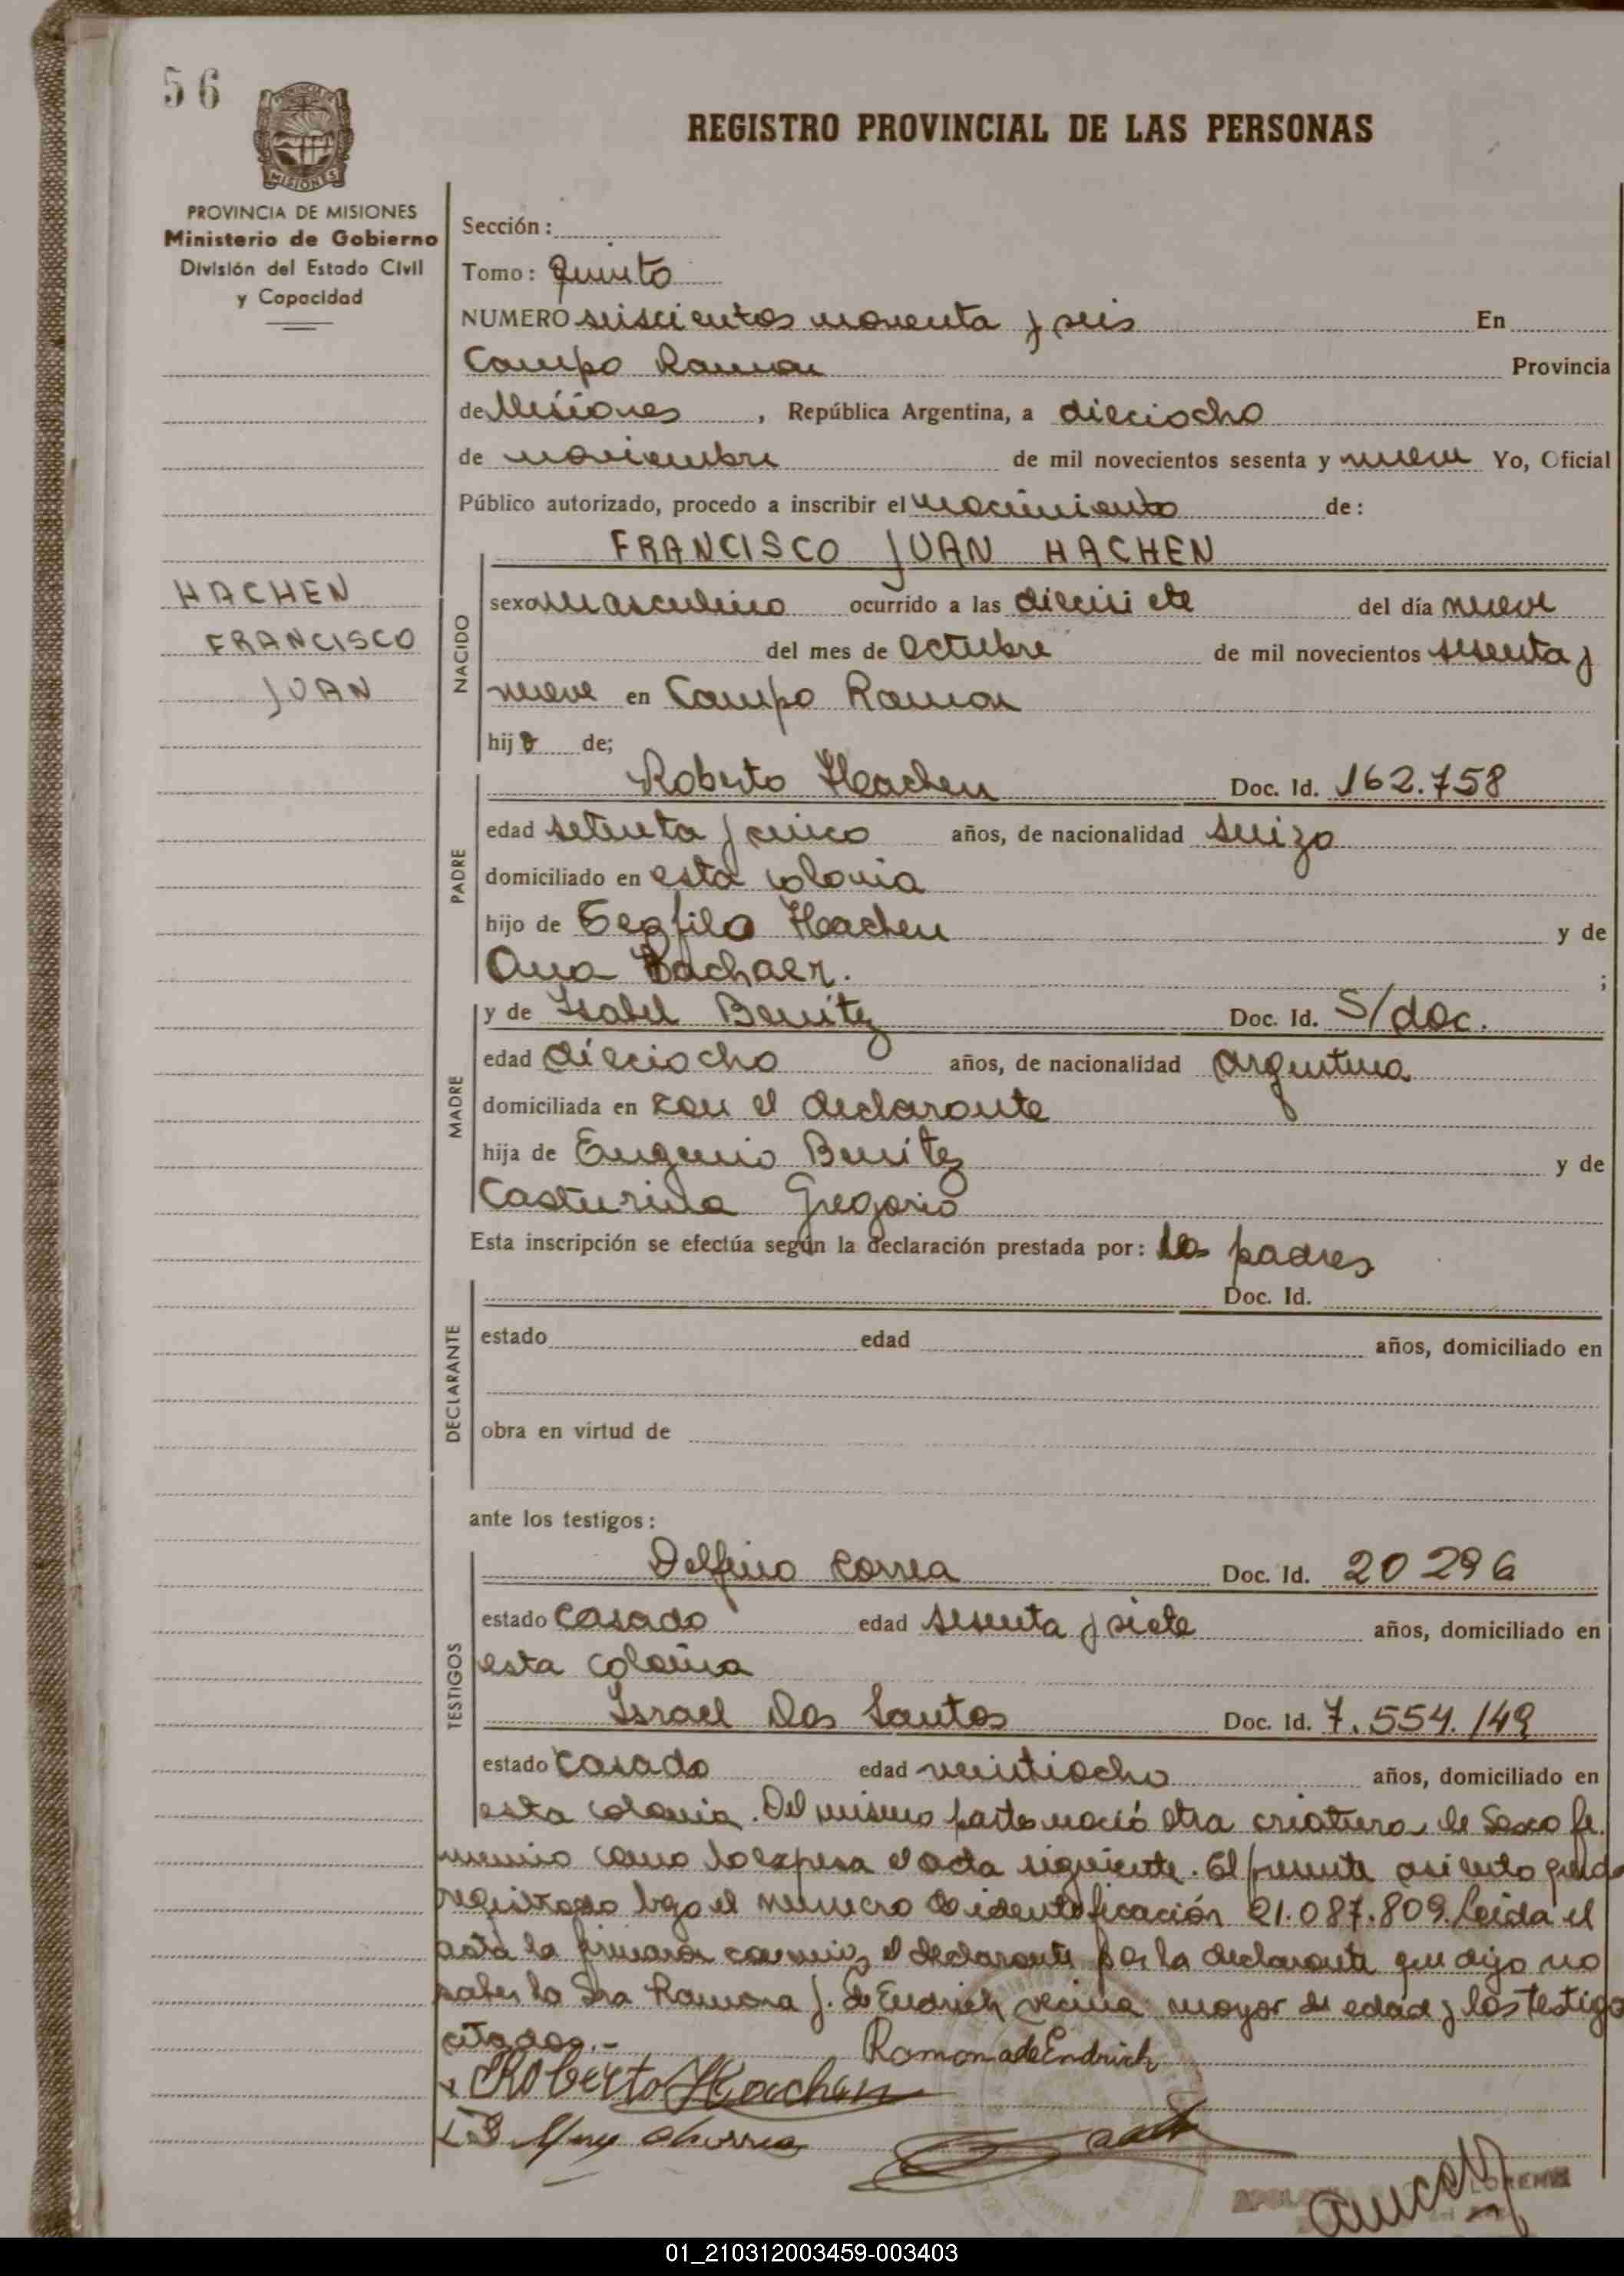 56
MISIONES
REGISTRO PROVINCIAL DE LAS PERSONAS
PROVINCIA DE MISIONES
Ministerio de Gobierno
División del Estado Civil
y Capacidad
HACHEN
FRANCISCO
JUAN
Sección:
Tomo: Quinto
NUMERO seiscientos noventa y seis En
Campo Ramon Provincia
de Misiones, República Argentina, a dieciocho
de noviembre de mil novecientos sesenta y nueve Yo, Oficial
Público autorizado, procedo a inscribir el nacimiento de:
FRANCISCO JUAN HACHEN
NACIDO
sexo masculino ocurrido a las diecisiete del día nueve
del mes de octubre de mil novecientos sesenta y
nueve en Campo Ramon
hijo de;
PADRE
Roberto Hachen Doc. Id. 162.758
edad setenta y cinco años, de nacionalidad suizo
domiciliado en esta colonia
hijo de Teofilo Hachen y de
Ana Bachaer. ;
MADRE
y de Isabel Benitez Doc. Id. S/doc.
edad dieciocho años, de nacionalidad argentina
domiciliada en con el declarante
hija de Eugenio Benitez y de
Casturina Gregorio
Esta inscripción se efectúa según la declaración prestada por: los padres
DECLARANTE
Doc. Id.
estado edad años, domiciliado en
obra en virtud de
ante los testigos:
TESTIGOS
Delfino Correa Doc. Id. 20 296
estado casado edad sesenta y siete años, domiciliado en
esta colonia
Israel Dos Santos Doc. Id. 7.554.149
estado casado edad veintiocho años, domiciliado en
esta colonia. Del mismo parto nació otra criatura de Sexo fe.
menino como lo expresa el acta siguiente. El presente asiento queda
registrado bajo el numero de identificación 21.087.809. Leida el
acta la firmaron conmigo el declarante por la declarante que dijo no
saber la Sra Ramona J. de Endrich vecina mayor de edad y los testigo
citados.-
Ramona de Endrich
Roberto Hachen
01_210312003459-003403